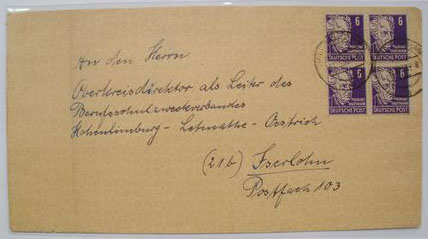 An den Herrn
Oberkreisdirektor als Leiter des
Berufsschulzweckverbandes
Hohenlimburg - Letmathe - Oestrich
(21b) Iserlohn
Postfach 103
6 6
DEUTSCHE POST DEUTSCHE POST
6 6
DEUTSCHE POST DEUTSCHE POST